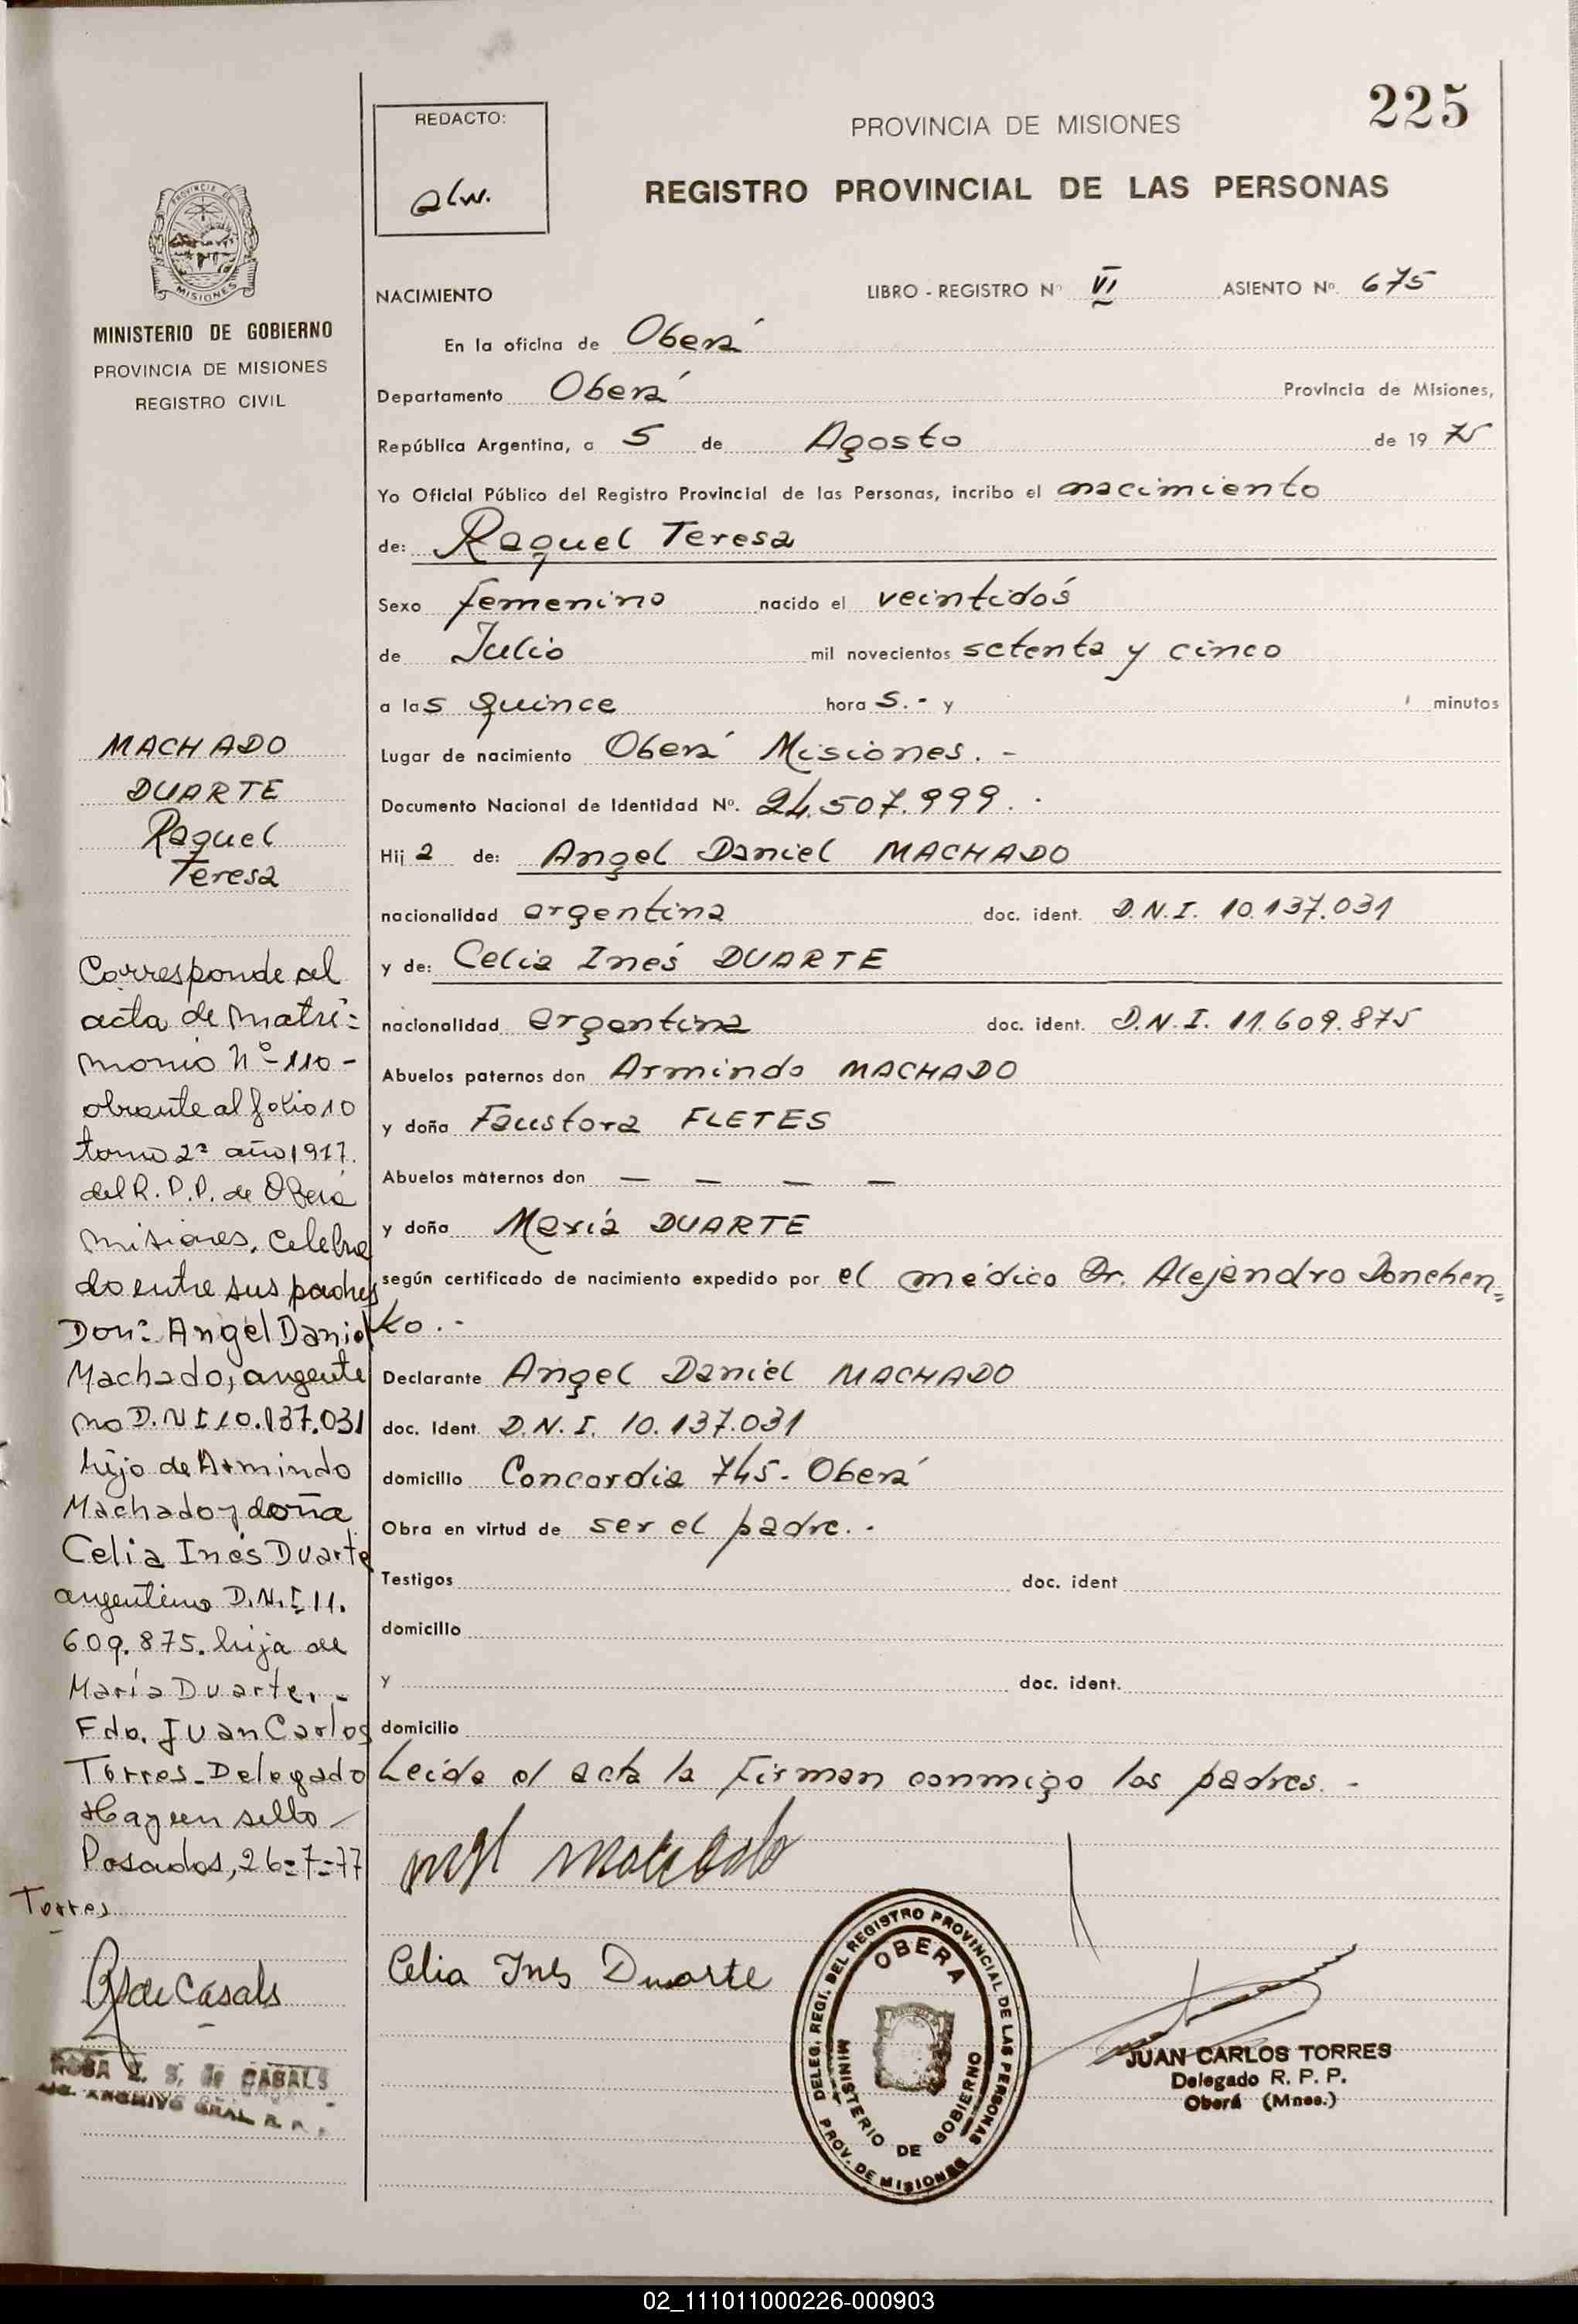 225
REDACTO:
PROVINCIA DE MISIONES
REGISTRO PROVINCIAL DE LAS PERSONAS
PROVINCIA DE
MISIONES
MINISTERIO DE GOBIERNO
PROVINCIA DE MISIONES
REGISTRO CIVIL
NACIMIENTO LIBRO - REGISTRO Nº VI ASIENTO Nº. 675
En la oficina de Oberá
Departamento Oberá Provincia de Misiones,
República Argentina, a 5 de Agosto de 19 75
Yo Oficial Público del Registro Provincial de las Personas, incribo el nacimiento
de: Raquel Teresa
Sexo femenino nacido el veintidós
de Julio mil novecientos setenta y cinco
a las quince hora s.- y minutos
Lugar de nacimiento Oberá Misiones.-
Documento Nacional de Identidad Nº. 24.507.999.-
Hij a de: Angel Daniel MACHADO
nacionalidad argentina doc. ident. D.N.I. 10.137.031
y de: Celia Inés DUARTE
nacionalidad argentina doc. ident. D.N.I. 11.609.875
Abuelos paternos don Armindo MACHADO
y doña Faustora FLETES
Abuelos maternos don — — — —
y doña María DUARTE
según certificado de nacimiento expedido por el médico Dr. Alejandro Donchen=
ko.-
Declarante Angel Daniel MACHADO
doc. Ident. D.N.I. 10.137.031
domicilio Concordia 745- Oberá
Obra en virtud de ser el padre.-
Testigos doc. ident
domicilio
y doc. ident.
domicilio
Leida el acta la firman conmigo los padres.-
MACHADO
DUARTE
Raquel
Teresa
Corresponde al
acta de matri=
monio Nº 110-
obrante al folio 10
tomo 2º año 1977.
del R.P.P. de Oberá
Misiones. Celebra
do entre sus padres
Don: Angel Daniel
Machado, argenti
no D.N.I 10.137.031
hijo de Armindo
Machado y doña
Celia Inés Duarte
argentina D.N.I 11.
609.875. hija de
María Duarte.-
Fdo. Juan Carlos
Torres-Delegado
Hay un sello
Posadas, 26=7=77
Torres
de Casals
ROSA E. S. de CASALS
ARCHIVO GRAL R. P. P.
machado
Celia Inés Duarte
DELEG. REGI. DEL REGISTRO PROVINCIAL DE LAS PERSONAS
OBERA
MINISTERIO DE GOBIERNO
PROV. DE MISIONES
JUAN CARLOS TORRES
Delegado R. P. P.
Oberá (Mnes.)
02_111011000226-000903